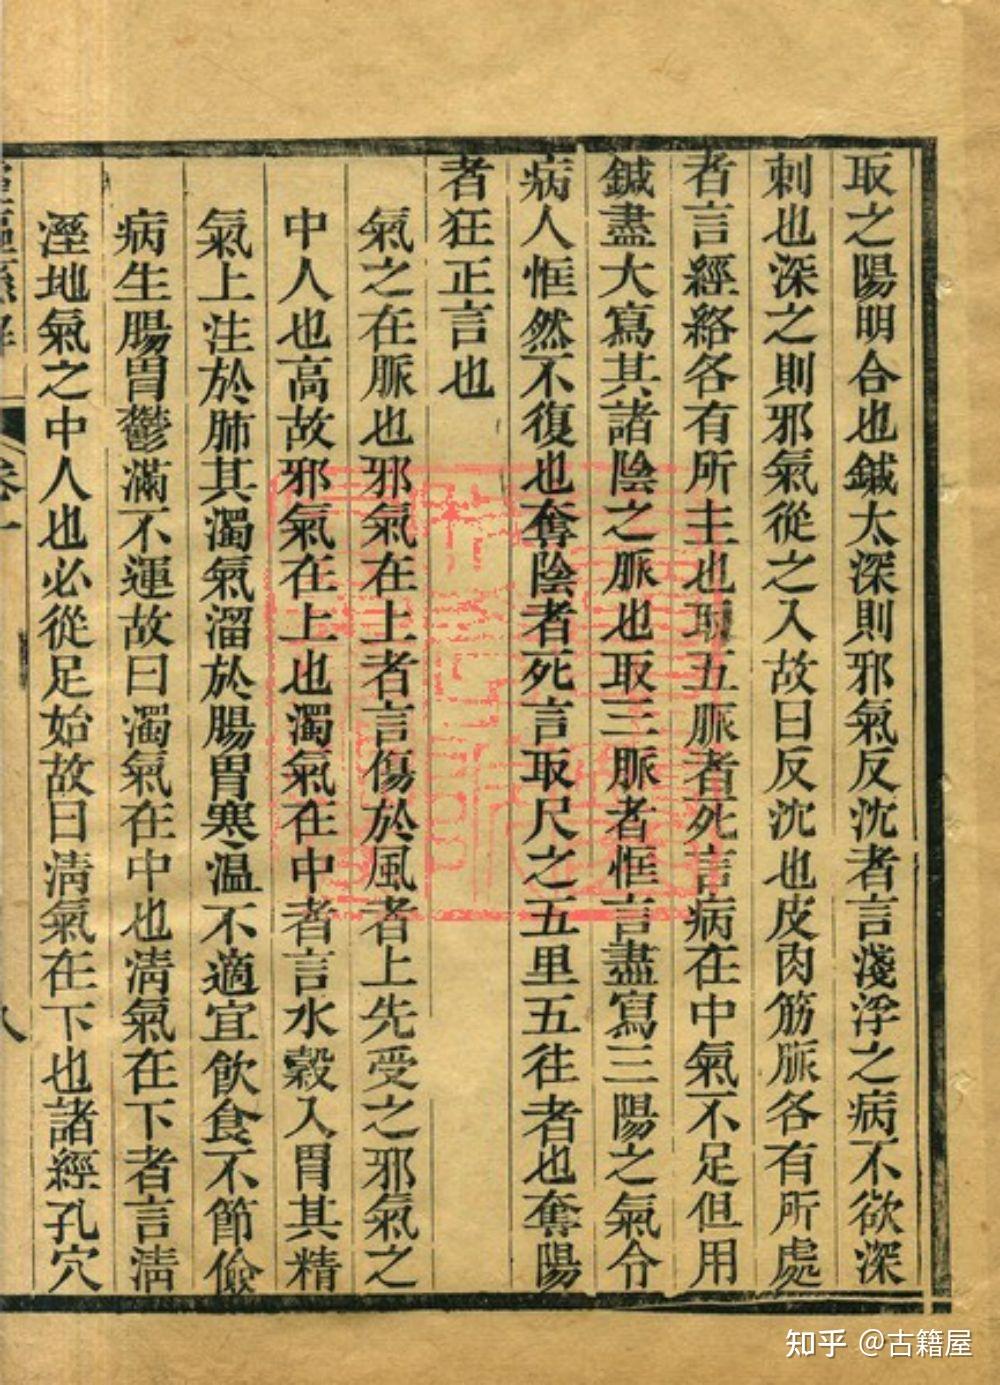 取之陽明合也鍼太深則邪氣反沈者言淺浮之病不欲深
刺也深之則邪氣從之入故曰反沈也皮肉筋脈各有所處
者言經絡各有所主也取五脈者死言病在中氣不足但用
鍼盡大寫其諸陰之脈也取三脈者恇言盡寫三陽之氣令
病人恇然不復也奪陰者死言取尺之五里五往者也奪陽
者狂正言也
氣之在脈也邪氣在上者言傷於風者上先受之邪氣之
中人也高故邪氣在上也濁氣在中者言水穀入胃其精
氣上注於肺其濁氣溜於腸胃寒溫不適宜飲食不節儉
病生腸胃鬱滿不運故曰濁氣在中也淸氣在下者言淸
溼地氣之中人也必從足始故曰淸氣在下也諸經孔穴
知乎 @古籍屋